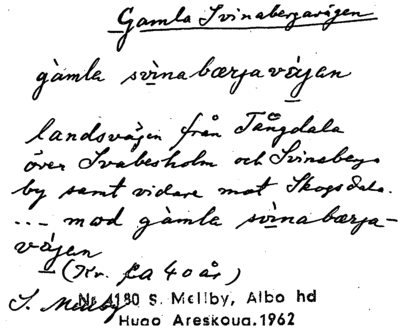 Gamla Svinabergavägen
gàmla svinabærjavä́jen
landsvägen från Tångdala
över Svabesholm och Svinaberga
by samt vidare mot Skogsdala.
... mod gàmla svinabærja-
väjen
(Kr. ca 40 år)
S. Mellby
Nr 4180 S. Mellby, Albo hd
Hugo Areskoug.1962